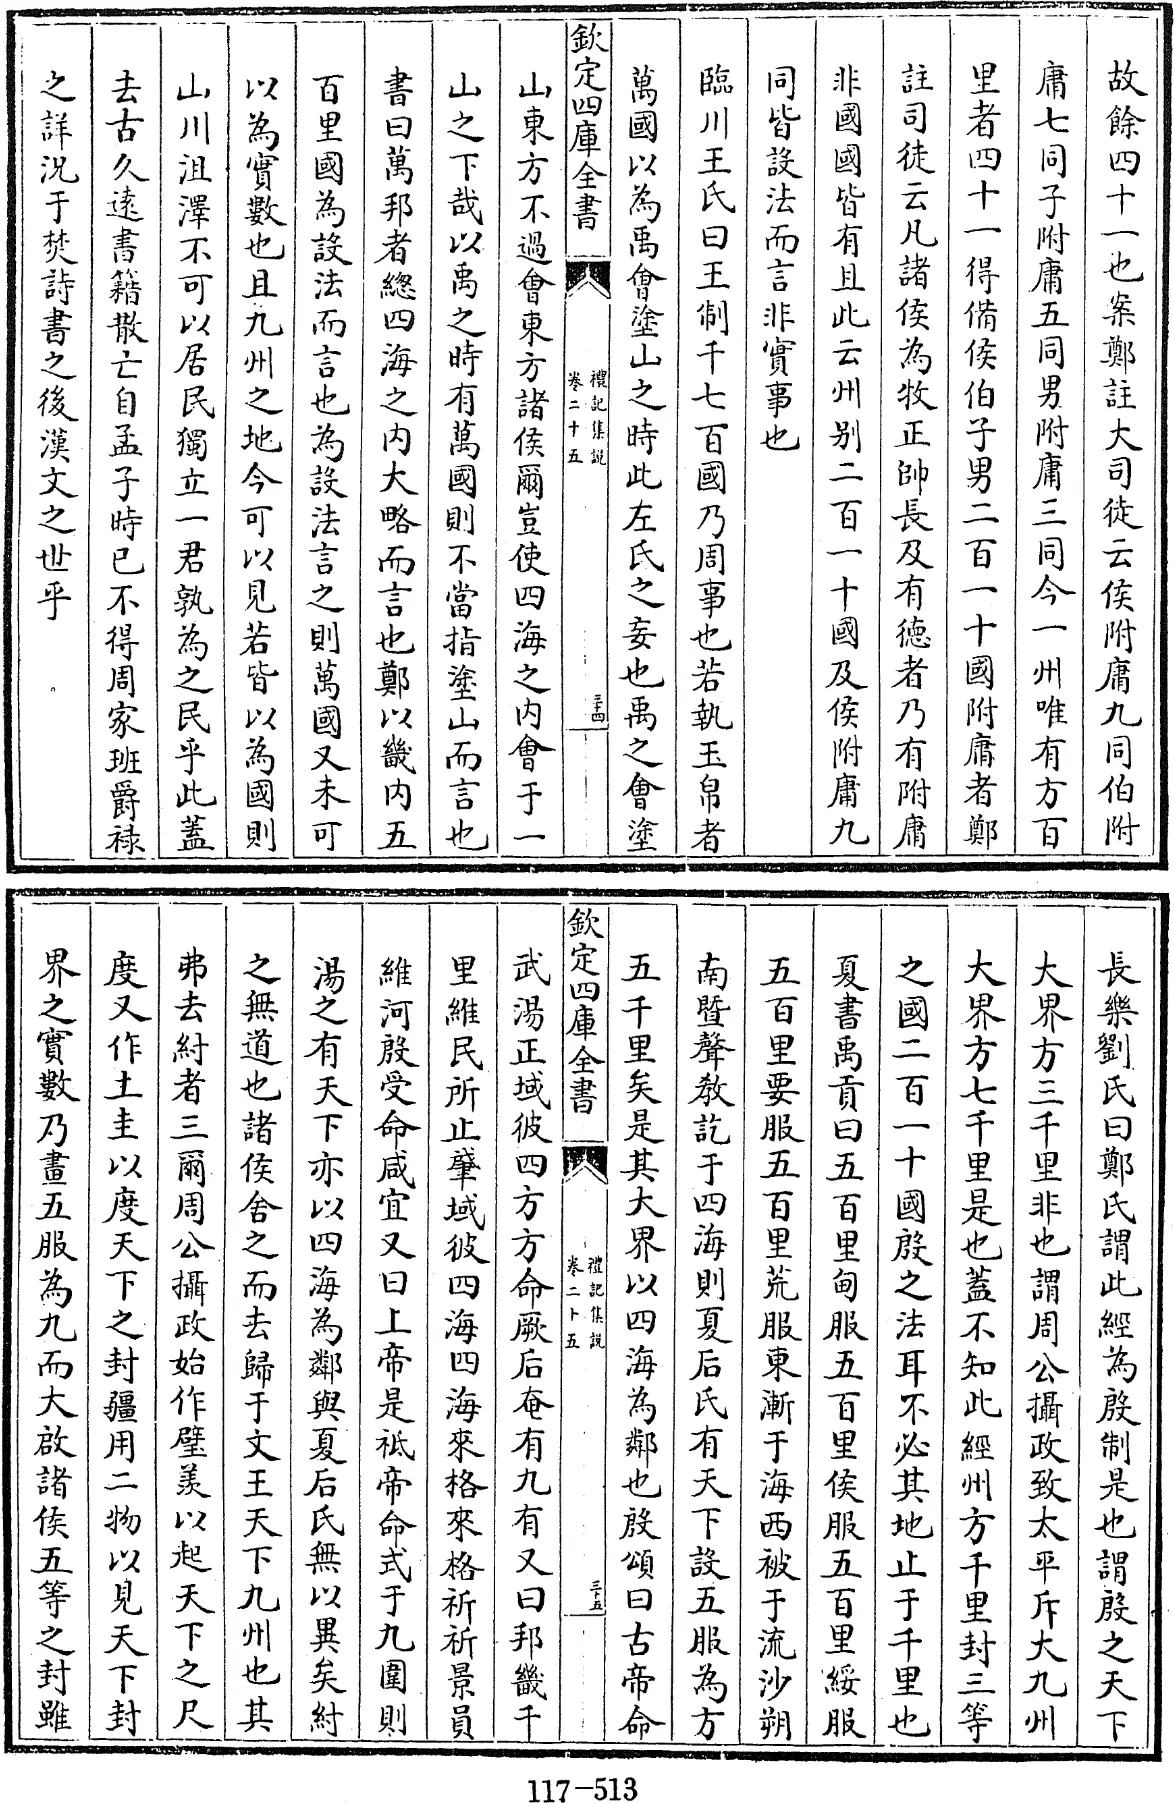 故餘四十一也案鄭註大司徒云侯附庸九同伯附
庸七同子附庸五同男附庸三同今一州唯有方百
里者四十一得備侯伯子男二百一十國附庸者鄭
註司徒云凡諸侯為牧正帥長及有德者乃有附庸
非國國皆有且此云州别二百一十國及侯附庸九
同皆設法而言非實事也
臨川王氏曰王制千七百國乃周事也若執玉帛者
萬國以為禹會塗山之時此左氏之妄也禹之會塗
欽定四庫全書
禮記集説
卷二十五
三十四
山東方不過會東方諸侯爾豈使四海之内會于一
山之下哉以禹之時有萬國則不當指塗山而言也
書曰萬邦者總四海之内大略而言也鄭以畿内五
百里國為設法而言也為設法言之則萬國又未可
以為實數也且九州之地今可以見若皆以為國則
山川沮澤不可以居民獨立一君孰為之民乎此蓋
去古久遠書籍散亡自孟子時已不得周家班爵祿
之詳況于焚詩書之後漢文之世乎
長樂劉氏曰鄭氏謂此經為殷制是也謂殷之天下
大界方三千里非也謂周公攝政致太平斥大九州
大界方七千里是也蓋不知此經州方千里封三等
之國二百一十國殷之法耳不必其地止于千里也
夏書禹貢曰五百里甸服五百里侯服五百里綏服
五百里要服五百里荒服東漸于海西被于流沙朔
南暨聲教訖于四海則夏后氏有天下設五服為方
五千里矣是其大界以四海為鄰也殷頌曰古帝命
欽定四庫全書
禮記集説
卷二十五
三十五
武湯正域彼四方方命厥后奄有九有又曰邦畿千
里維民所止肇域彼四海四海來格來格祈祈景員
維河殷受命咸宜又曰上帝是祗帝命式于九圍則
湯之有天下亦以四海為鄰與夏后氏無以異矣紂
之無道也諸侯舍之而去歸于文王天下九州也其
弗去紂者三爾周公攝政始作璧羨以起天下之尺
度又作土圭以度天下之封疆用二物以見天下封
界之實數乃畫五服為九而大啟諸侯五等之封雖
117-513